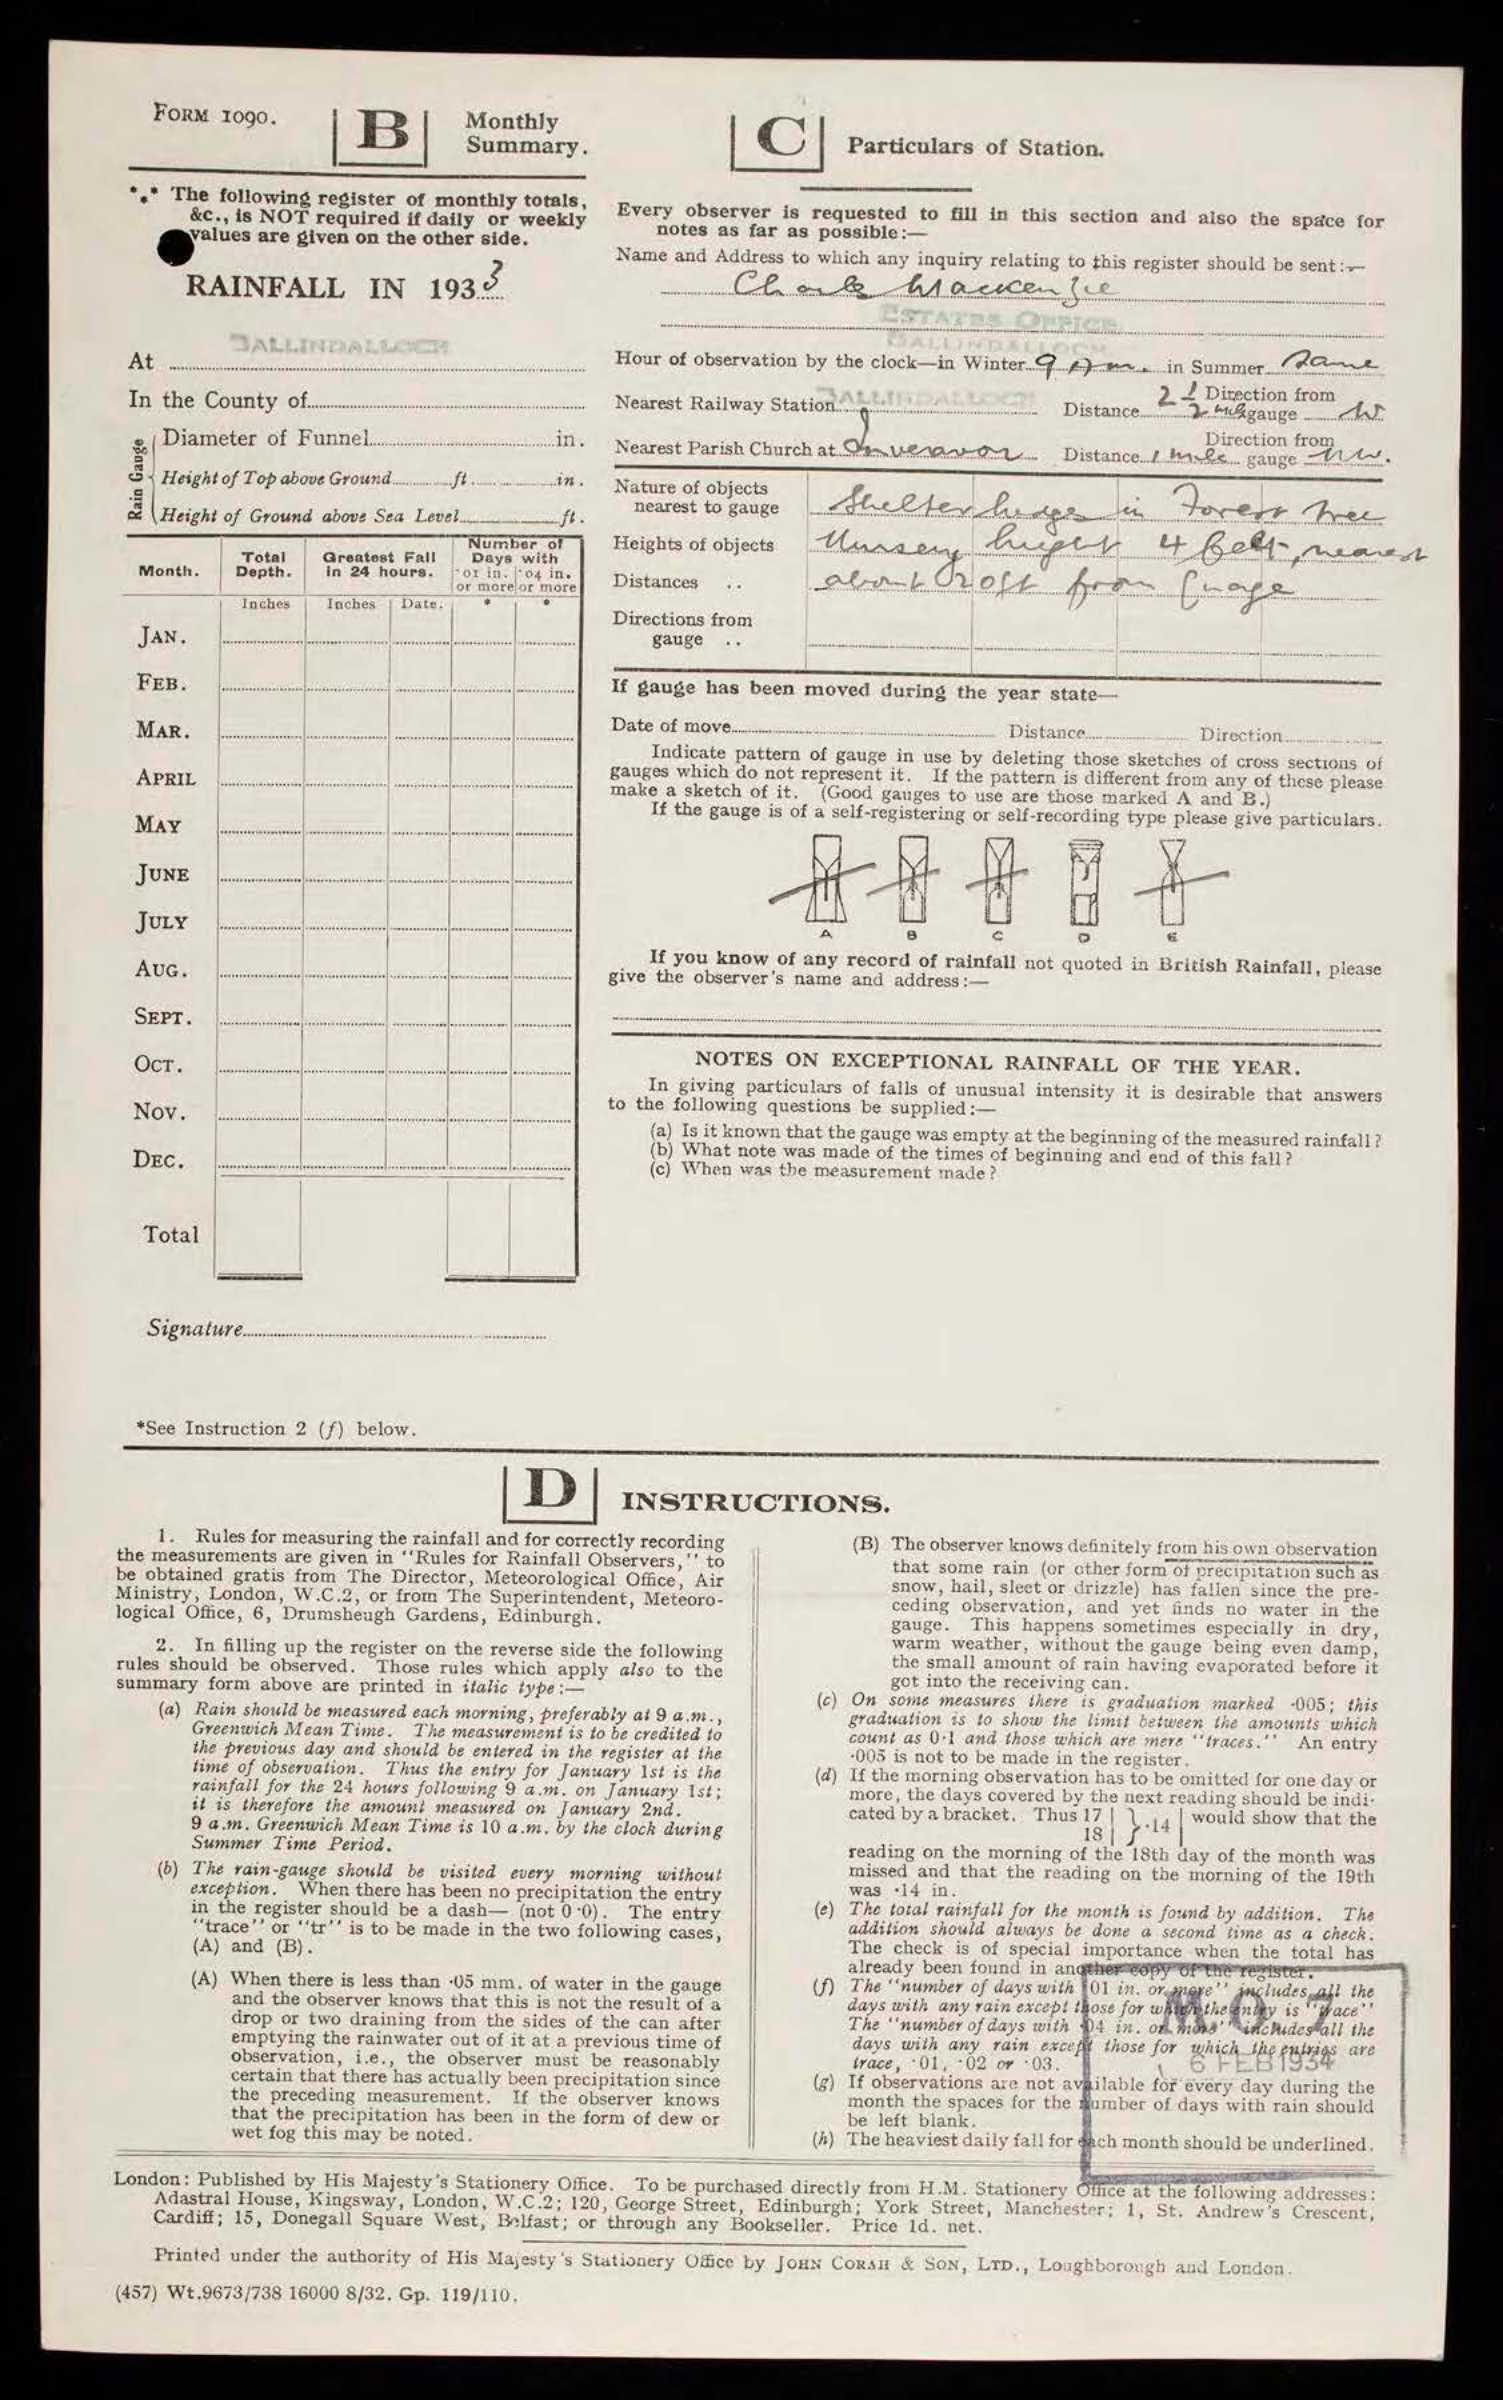 FORM 1090.
B
Monthly
Summary.
*.* The following register of monthly totals,
&c., is NOT required if daily or weekly
values are given on the other side.
RAINFALL IN 1933
At BALLINDALLOCH
In the County of
Rain Gauge
Diameter of Funnel in.
Height of Top above Ground ft. in.
Height of Ground above Sea Level ft.
Month. Total Depth. Greatest Fall in 24 hours. Number of Days with
·01 in. or more ·04 in. or more
Inches Inches Date. * *
JAN.
FEB.
MAR.
APRIL
MAY
JUNE
JULY
AUG.
SEPT.
OCT.
NOV.
DEC.
Total
Signature
*See Instruction 2 (f) below.
C
Particulars of Station.
Every observer is requested to fill in this section and also the space for
notes as far as possible:—
Name and Address to which any inquiry relating to this register should be sent:—
Charles Mackenzie
ESTATES OFFICE
BALLINDALLOCH
Hour of observation by the clock—in Winter 9 am. in Summer Same
Nearest Railway Station BALLINDALLOCH Distance 2 1/2 mile Direction from gauge W
Nearest Parish Church at Inveravon Distance 1 mile Direction from gauge NW.
Nature of objects
nearest to gauge Shelter hedges in Forest tree
Heights of objects Nursery height 4 feet, nearest
Distances .. about 20ft from Guage
Directions from
gauge ..
If gauge has been moved during the year state—
Date of move Distance Direction
Indicate pattern of gauge in use by deleting those sketches of cross sections of
gauges which do not represent it. If the pattern is different from any of these please
make a sketch of it. (Good gauges to use are those marked A and B.)
If the gauge is of a self-registering or self-recording type please give particulars.
A B C D E
If you know of any record of rainfall not quoted in British Rainfall, please
give the observer's name and address:—
NOTES ON EXCEPTIONAL RAINFALL OF THE YEAR.
In giving particulars of falls of unusual intensity it is desirable that answers
to the following questions be supplied:—
(a) Is it known that the gauge was empty at the beginning of the measured rainfall?
(b) What note was made of the times of beginning and end of this fall?
(c) When was the measurement made?
D
INSTRUCTIONS.
1. Rules for measuring the rainfall and for correctly recording
the measurements are given in "Rules for Rainfall Observers," to
be obtained gratis from The Director, Meteorological Office, Air
Ministry, London, W.C.2, or from The Superintendent, Meteoro-
logical Office, 6, Drumsheugh Gardens, Edinburgh.
2. In filling up the register on the reverse side the following
rules should be observed. Those rules which apply also to the
summary form above are printed in italic type:—
(a) Rain should be measured each morning, preferably at 9 a.m.,
Greenwich Mean Time. The measurement is to be credited to
the previous day and should be entered in the register at the
time of observation. Thus the entry for January 1st is the
rainfall for the 24 hours following 9 a.m. on January 1st;
it is therefore the amount measured on January 2nd.
9 a.m. Greenwich Mean Time is 10 a.m. by the clock during
Summer Time Period.
(b) The rain-gauge should be visited every morning without
exception. When there has been no precipitation the entry
in the register should be a dash— (not 0·0). The entry
"trace" or "tr" is to be made in the two following cases,
(A) and (B).
(A) When there is less than ·05 mm. of water in the gauge
and the observer knows that this is not the result of a
drop or two draining from the sides of the can after
emptying the rainwater out of it at a previous time of
observation, i.e., the observer must be reasonably
certain that there has actually been precipitation since
the preceding measurement. If the observer knows
that the precipitation has been in the form of dew or
wet fog this may be noted.
(B) The observer knows definitely from his own observation
that some rain (or other form of precipitation such as
snow, hail, sleet or drizzle) has fallen since the pre-
ceding observation, and yet finds no water in the
gauge. This happens sometimes especially in dry,
warm weather, without the gauge being even damp,
the small amount of rain having evaporated before it
got into the receiving can.
(c) On some measures there is graduation marked ·005; this
graduation is to show the limit between the amounts which
count as 0·1 and those which are mere "traces." An entry
·005 is not to be made in the register.
(d) If the morning observation has to be omitted for one day or
more, the days covered by the next reading should be indi-
cated by a bracket. Thus 17 | } ·14 | would show that the
18 |
reading on the morning of the 18th day of the month was
missed and that the reading on the morning of the 19th
was ·14 in.
(e) The total rainfall for the month is found by addition. The
addition should always be done a second time as a check.
The check is of special importance when the total has
already been found in another copy of the register.
(f) The "number of days with ·01 in. or more" includes all the
days with any rain except those for which the entry is "trace"
The "number of days with ·04 in. or more" includes all the
days with any rain except those for which the entries are
trace, ·01, ·02 or ·03.
(g) If observations are not available for every day during the
month the spaces for the number of days with rain should
be left blank.
(h) The heaviest daily fall for each month should be underlined.
M.O.7
6 FEB 1934
London: Published by His Majesty's Stationery Office. To be purchased directly from H.M. Stationery Office at the following addresses:
Adastral House, Kingsway, London, W.C.2; 120, George Street, Edinburgh; York Street, Manchester; 1, St. Andrew's Crescent,
Cardiff; 15, Donegall Square West, Belfast; or through any Bookseller. Price 1d. net.
Printed under the authority of His Majesty's Stationery Office by JOHN CORAH & SON, LTD., Loughborough and London.
(457) Wt.9673/738 16000 8/32. Gp. 119/110.